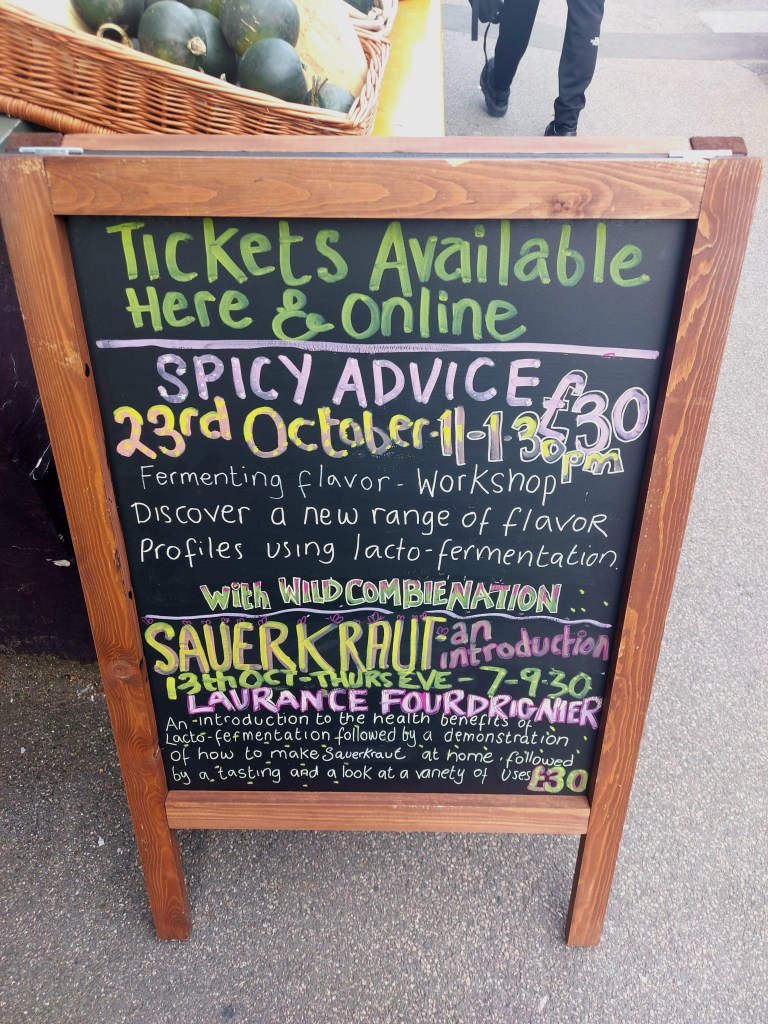 Tickets Available
Here & Online
SPICY ADVICE £30
23rd October-11-1.30pm
Fermenting flavor - Workshop
Discover a new range of flavor
Profiles using lacto-fermentation
with WILD COMBIENATION
SAUERKRAUT-an introduction
13th OCT-THURS EVE - 7-9.30
LAURANCE FOURDRIGNIER
An introduction to the health benefits of
Lacto-fermentation followed by a demonstration
of how to make Sauerkraut at home followed
by a tasting and a look at a variety of uses £30